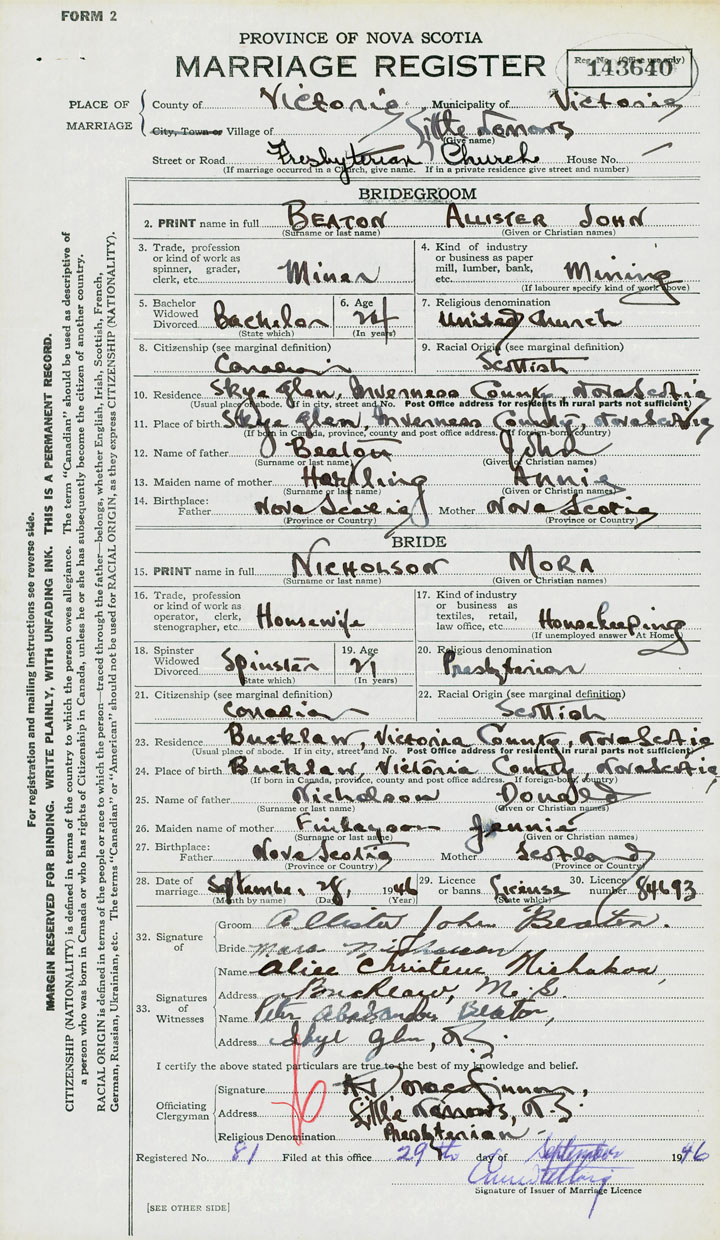 FORM 2
PROVINCE OF NOVA SCOTIA
MARRIAGE REGISTER
Reg. No. (Office use only)
143640
PLACE OF MARRIAGE
County of Victoria Municipality of Victoria
City, Town or Village of Little Narrows
(Give name)
Street or Road Presbyterian Church House No. —
(If marriage occurred in a Church, give name. If in a private residence give street and number)
BRIDEGROOM
2. PRINT name in full BEATON ALLISTER JOHN
(Surname or last name) (Given or Christian names)
3. Trade, profession or kind of work as spinner, grader, clerk, etc. Miner
4. Kind of industry or business as paper mill, lumber, bank, etc. Mining
(If labourer specify kind of work above)
5. Bachelor Widowed Divorced Bachelor
(State which)
6. Age 24
(In years)
7. Religious denomination United Church
8. Citizenship (see marginal definition) Canadian
9. Racial Origin (see marginal definition) Scottish
10. Residence Skye Glen, Inverness County, Nova Scotia
(Usual place of abode. If in city, street and No. Post Office address for residents in rural parts not sufficient)
11. Place of birth Skye Glen, Inverness County, Nova Scotia
(If born in Canada, province, county and post office address. If foreign-born, country)
12. Name of father Beaton John
(Surname or last name) (Given or Christian names)
13. Maiden name of mother Annie
(Surname or last name) (Given or Christian names)
14. Birthplace: Father Nova Scotia Mother Nova Scotia
(Province or Country) (Province or Country)
BRIDE
15. PRINT name in full NICHOLSON MORA
(Surname or last name) (Given or Christian names)
16. Trade, profession or kind of work as operator, clerk, stenographer, etc. Housewife
17. Kind of industry or business as textiles, retail, law office, etc. Housekeeping
(If unemployed answer "At Home")
18. Spinster Widowed Divorced Spinster
(State which)
19. Age 21
(In years)
20. Religious denomination Presbyterian
21. Citizenship (see marginal definition) Canadian
22. Racial Origin (see marginal definition) Scottish
23. Residence Bucklaw, Victoria County, Nova Scotia
(Usual place of abode. If in city, street and No. Post Office address for residents in rural parts not sufficient)
24. Place of birth Bucklaw, Victoria County, Nova Scotia
(If born in Canada, province, county and post office address. If foreign-born, country)
25. Name of father Nicholson Donald
(Surname or last name) (Given or Christian names)
26. Maiden name of mother Finlayson Jennie
(Surname or last name) (Given or Christian names)
27. Birthplace: Father Nova Scotia Mother Scotland
(Province or Country) (Province or Country)
28. Date of marriage September 28, 1946
(Month by name) (Day) (Year)
29. Licence or banns License
(State which)
30. Licence number 84693
32. Signature of
Groom Allister John Beaton.
Bride Mora Nicholson
33. Signatures of Witnesses
Name Alice Christene Nicholson,
Address Bucklaw, N.S.
Name Peter Alexander Beaton,
Address Skye Glen, N.S.
I certify the above stated particulars are true to the best of my knowledge and belief.
Officiating Clergyman
Signature MacKinnon,
Address Little Narrows, N.S.
Religious Denomination Presbyterian
Registered No. 81 Filed at this office 29th day of September 1946
Signature of Issuer of Marriage Licence
[SEE OTHER SIDE]
For registration and mailing instructions see reverse side.
MARGIN RESERVED FOR BINDING. WRITE PLAINLY, WITH UNFADING INK. THIS IS A PERMANENT RECORD.
CITIZENSHIP (NATIONALITY) is defined in terms of the country to which the person owes allegiance. The term "Canadian" should be used as descriptive of
a person who was born in Canada or who has rights of Citizenship in Canada, unless he or she has subsequently become the citizen of another country.
RACIAL ORIGIN is defined in terms of the people or race to which the person—traced through the father—belongs, whether English, Irish, Scottish, French,
German, Russian, Ukrainian, etc. The terms "Canadian" or "American" should not be used for RACIAL ORIGIN, as they express CITIZENSHIP (NATIONALITY).